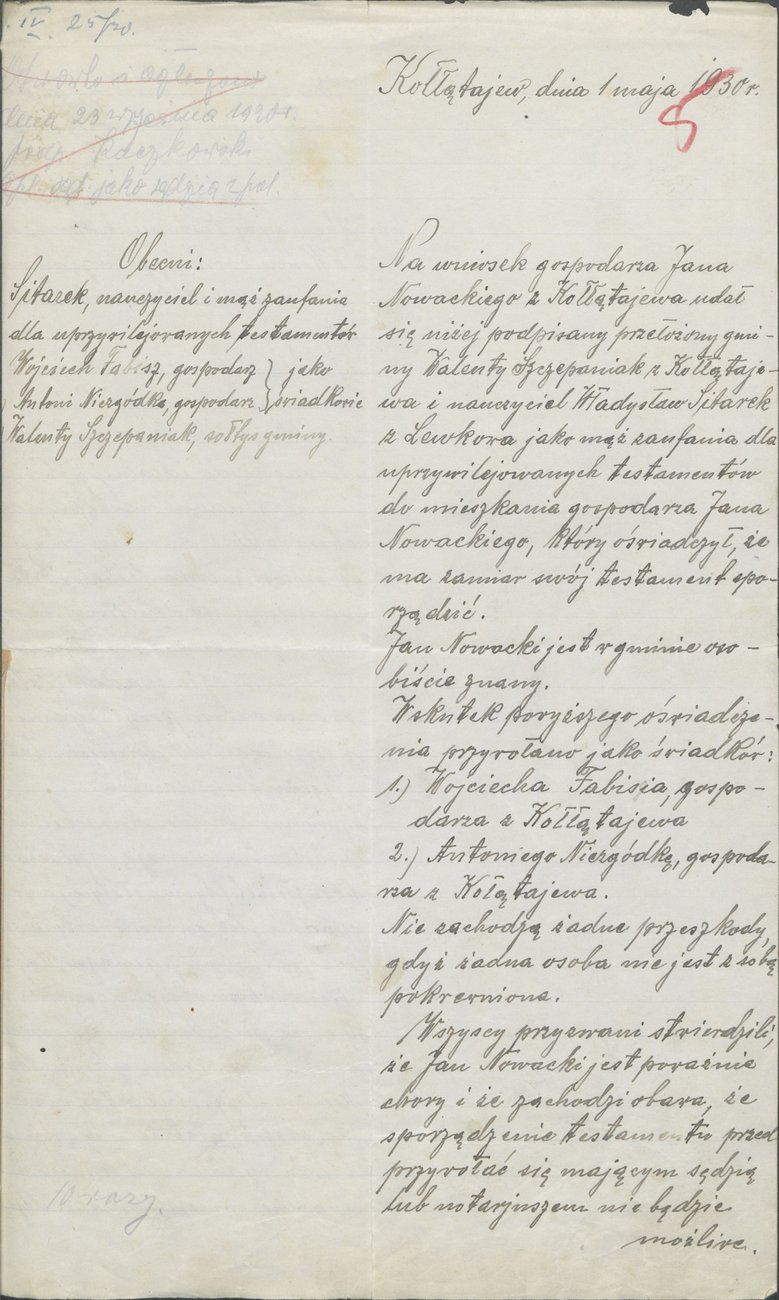 IV 25/20.
Otwarto i ogłoszono
dnia 23 września 1920 r.
podp. Raczkowski
jako sędzia z pol.
Kołłątajew, dnia 1 maja 1930 r.
8
Obecni:
Sitarek, nauczyciel i mąż zaufania
dla uprzywilejowanych testamentów
Wojciech Fabisz, gospodarz } jako
Antoni Niezgódka, gospodarz } świadkowie
Walenty Szczepaniak, sołtys gminy.
10 razy.
Na wniosek gospodarza Jana
Nowackiego z Kołłątajewa udał
się niżej podpisany przełożony gmi-
ny Walenty Szczepaniak z Kołłątaje-
wa i nauczyciel Władysław Sitarek
z Lewkowa jako mąż zaufania dla
uprzywilejowanych testamentów
do mieszkania gospodarza Jana
Nowackiego, który oświadczył, że
ma zamiar swój testament spo-
rządzić.
Jan Nowacki jest w gminie oso-
biście znany.
Wskutek powyższego oświadcze-
nia przywołano jako świadków:
1.) Wojciecha Fabisza, gospo-
darza z Kołłątajewa
2.) Antoniego Niezgódkę, gospoda-
rza z Kołątajewa.
Nie zachodzą żadne przeszkody,
gdyż żadna osoba nie jest z sobą
pokrewniona.
Wszyscy przyzwani stwierdzili,
że Jan Nowacki jest poważnie
chory i że zachodzi obawa, że
sporządzenie testamentu przed
przywołać się mającym sędzią
lub notarjuszem nie będzie
możliwe.